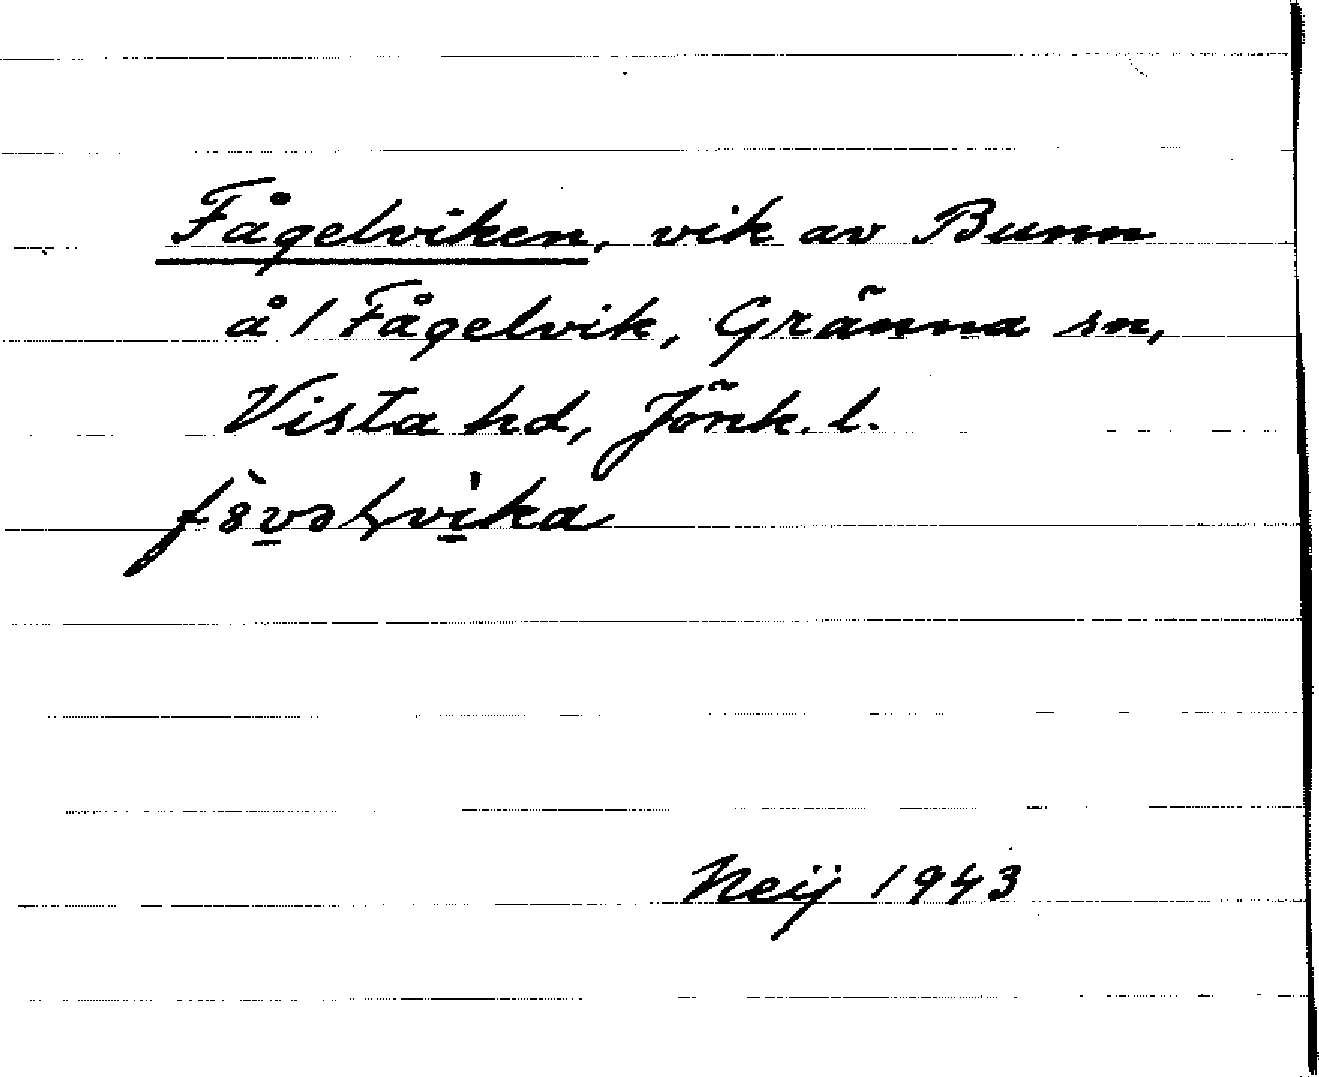 Fågelviken, vik av Bunn
å 1 Fågelvik, Gränna sn,
Vista hd, Jönk. l.
Neij 1943